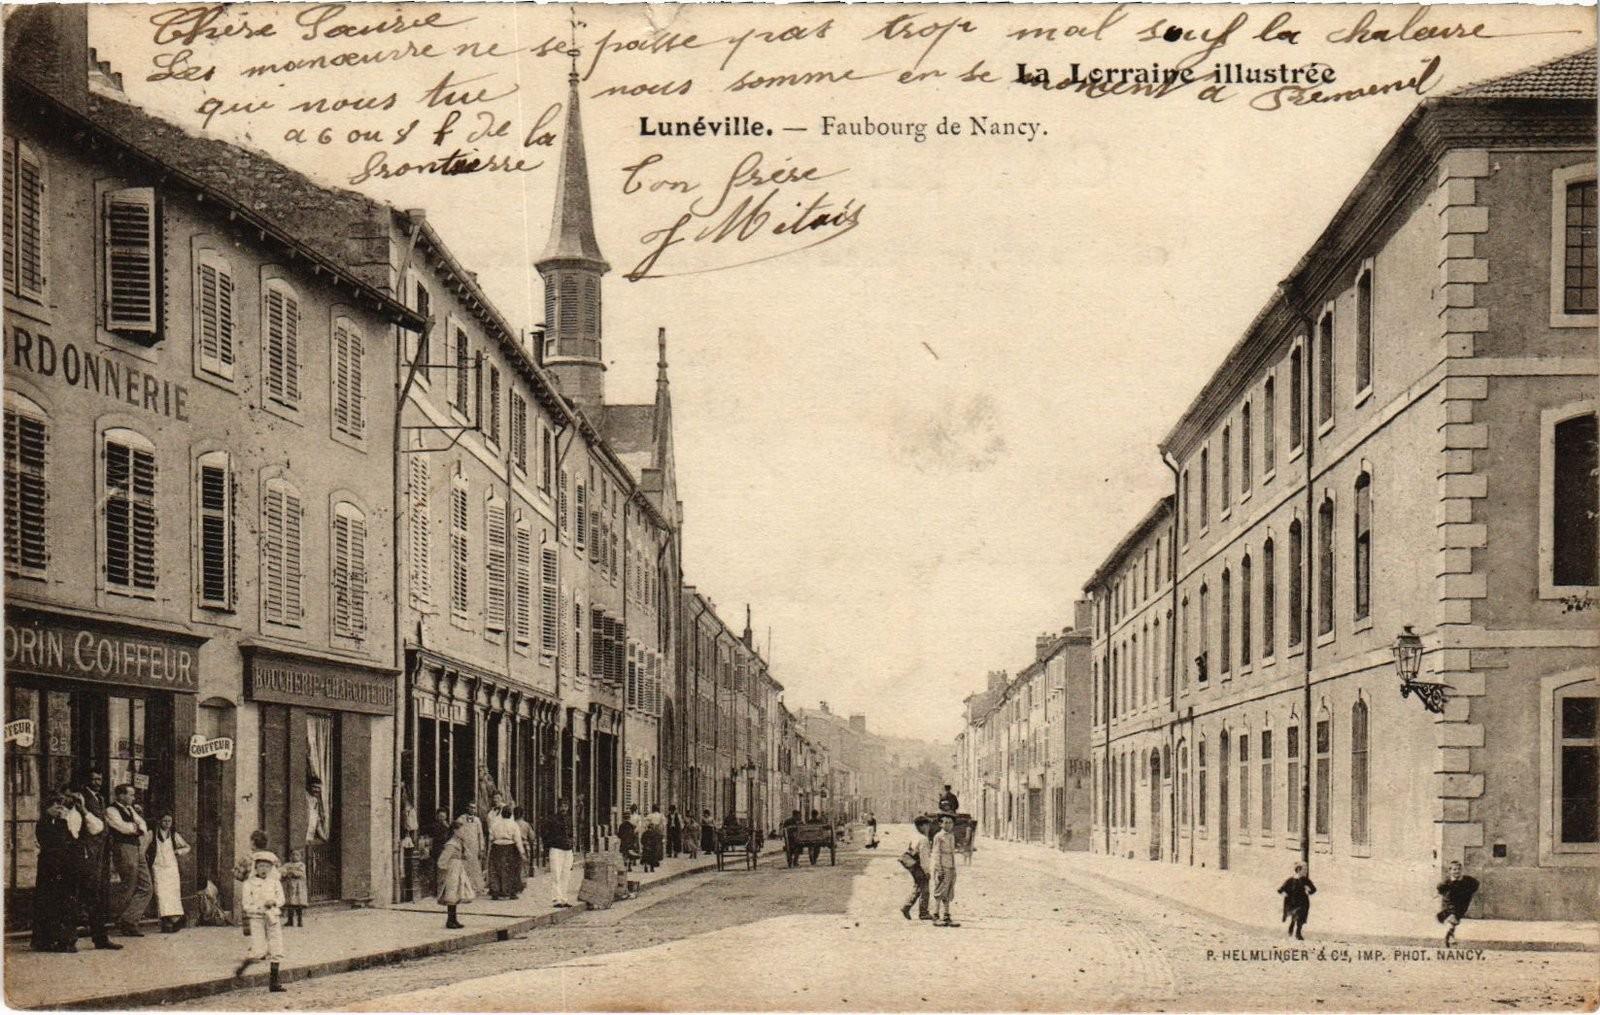 Chère Soeurre
Les manœuvre ne se passe pas trop mal sauf la chaleure
qui nous tue nous somme en se moment a
a 6 ou 8 de la
frontierre
Ton frére
J Mitais
La Lorraine illustrée
Lunéville. — Faubourg de Nancy.
ORDONNERIE
ORIN. COIFFEUR
BOUCHERIE-CHARCUTERIE
COIFFEUR
FFEUR
25
P. HELMLINGER & Cie, IMP. PHOT. NANCY.